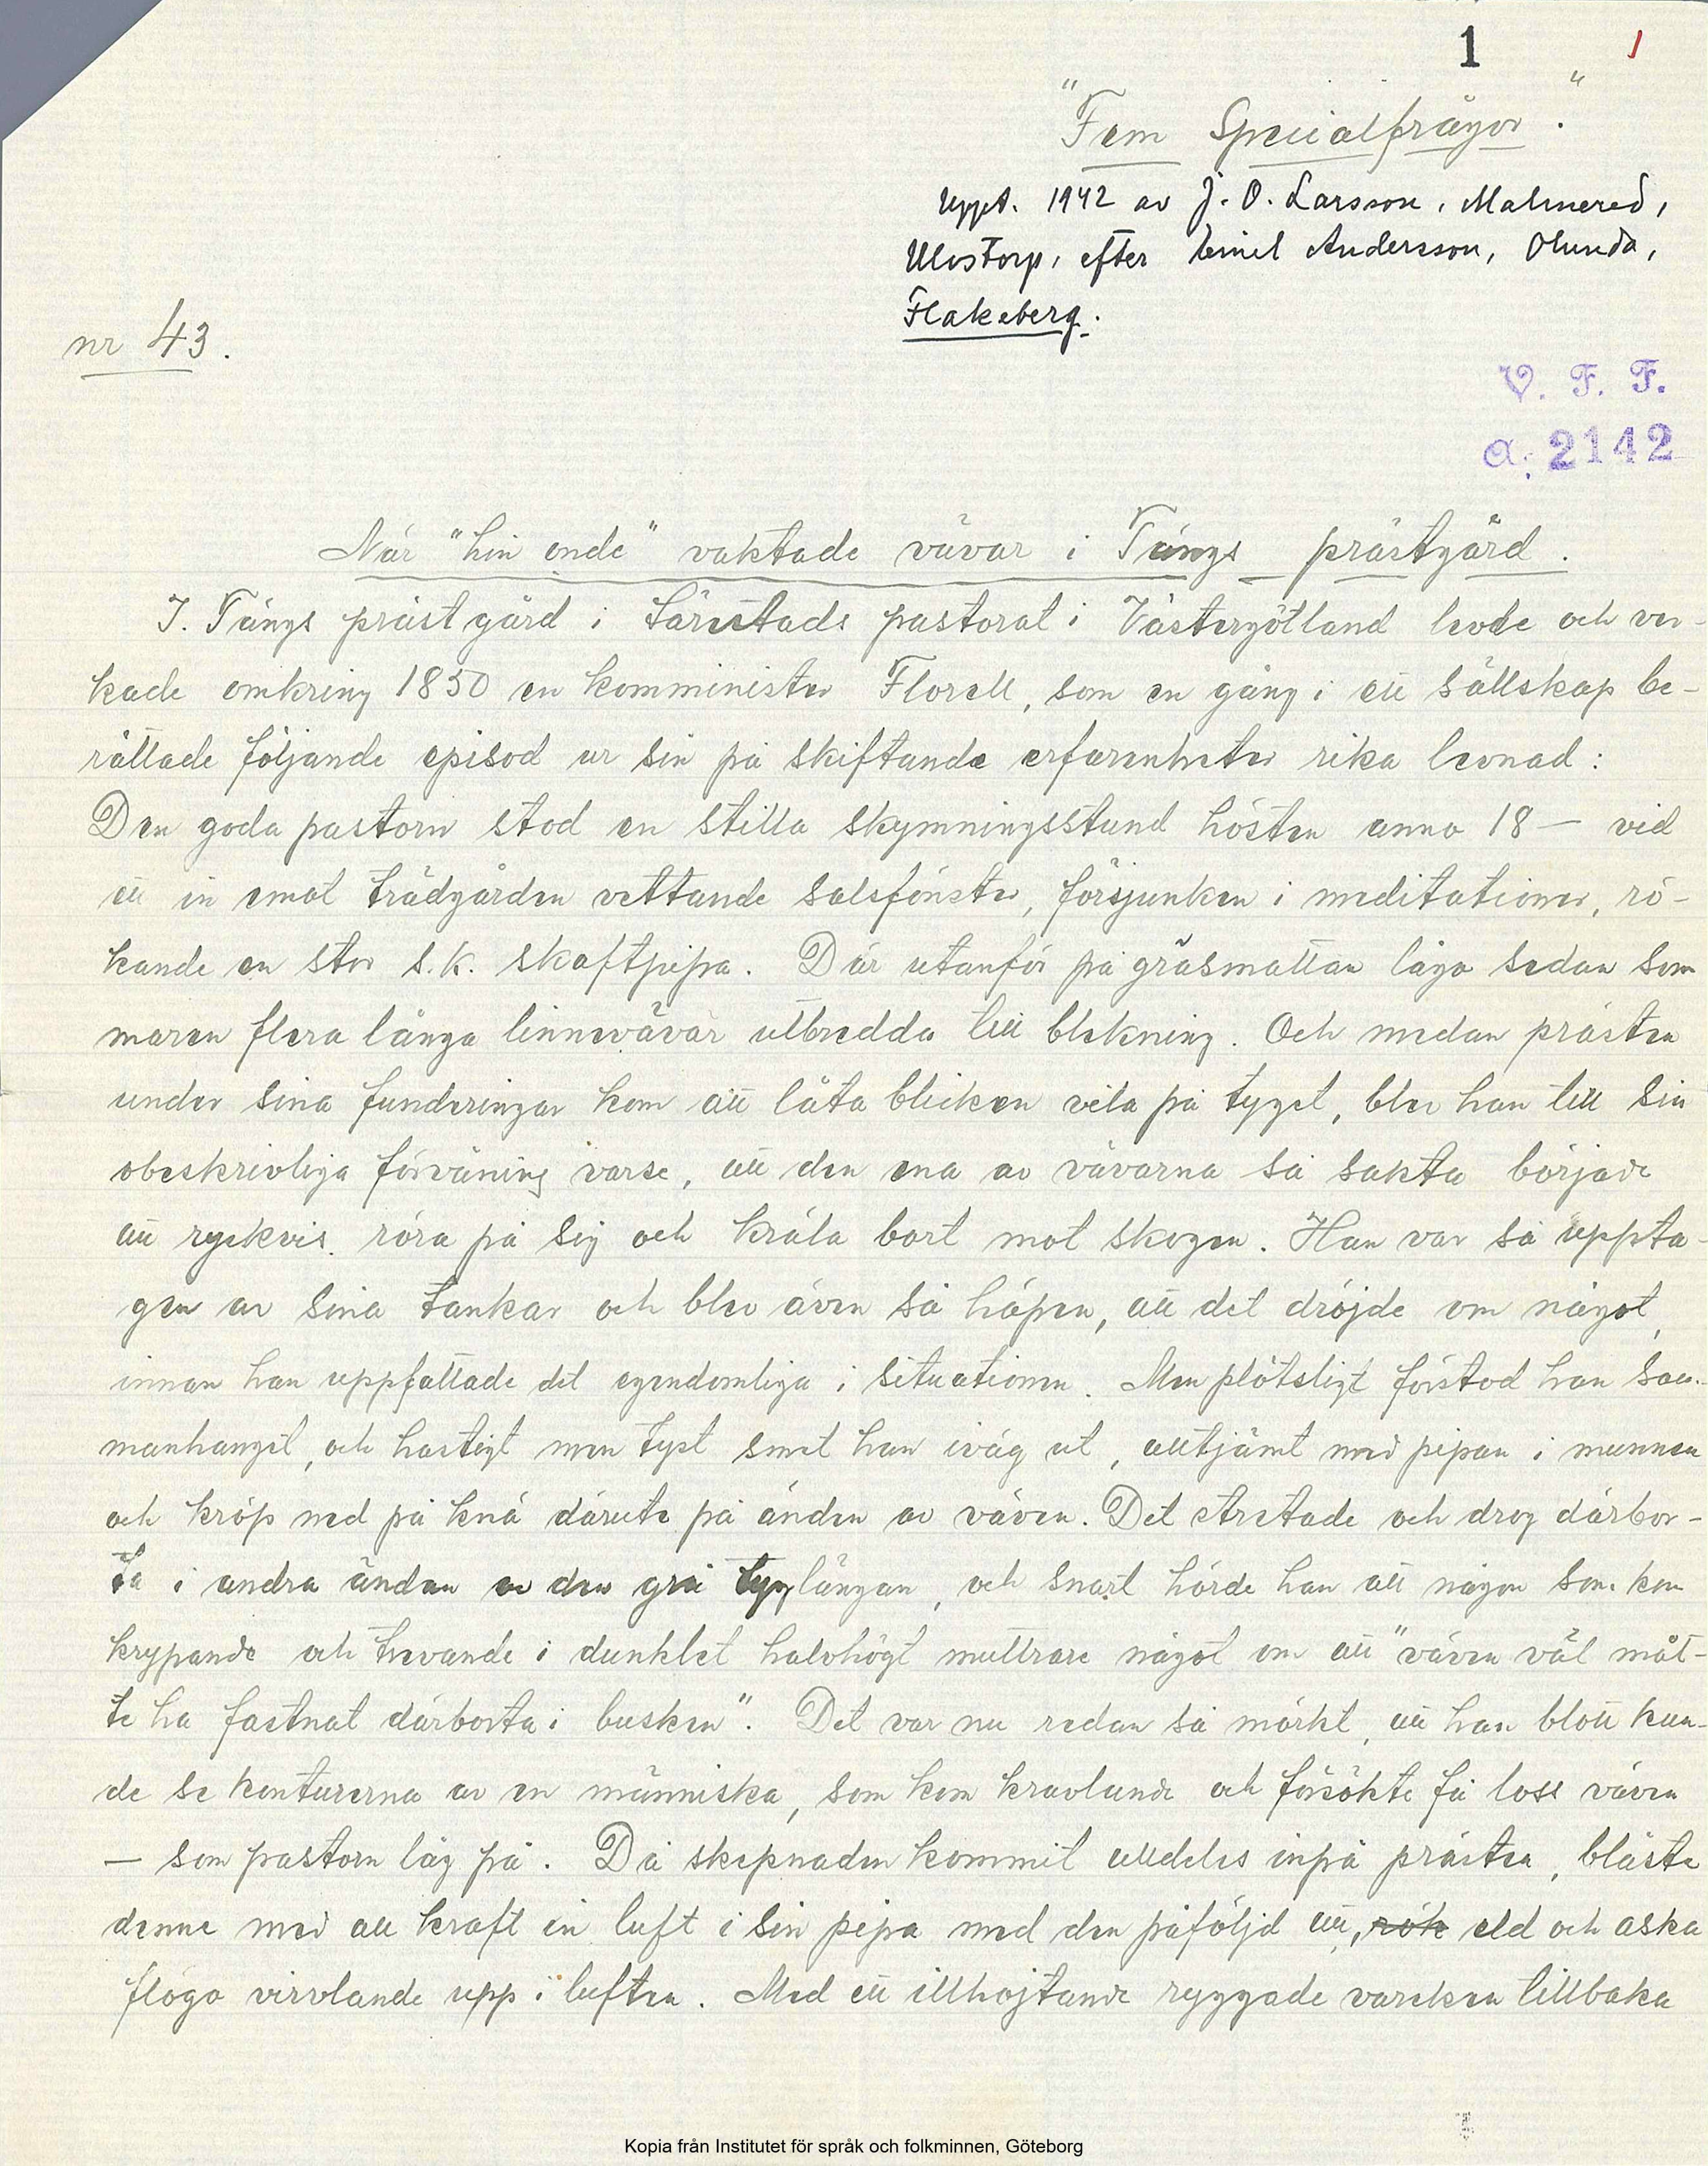 1 1
"Fem Specialfrågor."
Uppt. 1942 av J. O. Larsson, Malmered,
Ulvstorp, efter Emil Andersson, Olunda,
Flakeberg.
nr 43.
V. F. F.
a: 2142
När "hin onde" vaktade vävar i Tängs prästgård.
I. Tängs prästgård i Särestads pastorat i Västergötland levde och ver-
kade omkring 1850 en komminister Florell, som en gång i ett sällskap be-
rättade följande episod ur sin på skiftande erfarenheter rika levnad:
Den goda pastorn stod en stilla skymningsstund hösten anno 18— vid
ett in emot trädgården vettande salsfönster, försjunken i meditationer, rö-
kande en stor s.k. skaftpipa. Där utanför på gräsmattan lågo sedan som
maren flera långa linnevävar utbredda till blekning. Och medan prästen
under sina funderingar kom att låta blicken vila på tyget, blev han till sin
obeskrivliga förvåning varse, att den ena av vävarna så sakta började
att ryckvis röra på sig och kräla bort mot skogen. Han var så uppta-
gen av sina tankar och blev även så häpen, att det dröjde om något,
innan han uppfattade det egendomliga i situationen. Men plötsligt förstod han sam-
manhanget, och hastigt men tyst smet han iväg ut, alltjämt med pipan i munnen
och kröp ned på knä därute på änden av väven. Det stretade och drog därbor-
ta i andra ändan av den grå tyglängan, och snart hörde han att någon som kom
krypande och trevande i dunklet halvhögt muttrare något om att "väven väl måt-
te ha fastnat därborta i busken". Det var nu redan så mörkt, att han blott kun-
de se konturerna av en människa, som kom kravlande och försökte få loss väven
— som pastorn låg på. Då skepnaden kommit alldeles inpå prästen, blåste
denne med all kraft in luft i sin pipa med den påföljd att, rök eld och aska
flögo virvlande upp i luften. Med ett illhojtande ryggade varelsen tillbaka
Kopia från Institutet för språk och folkminnen, Göteborg